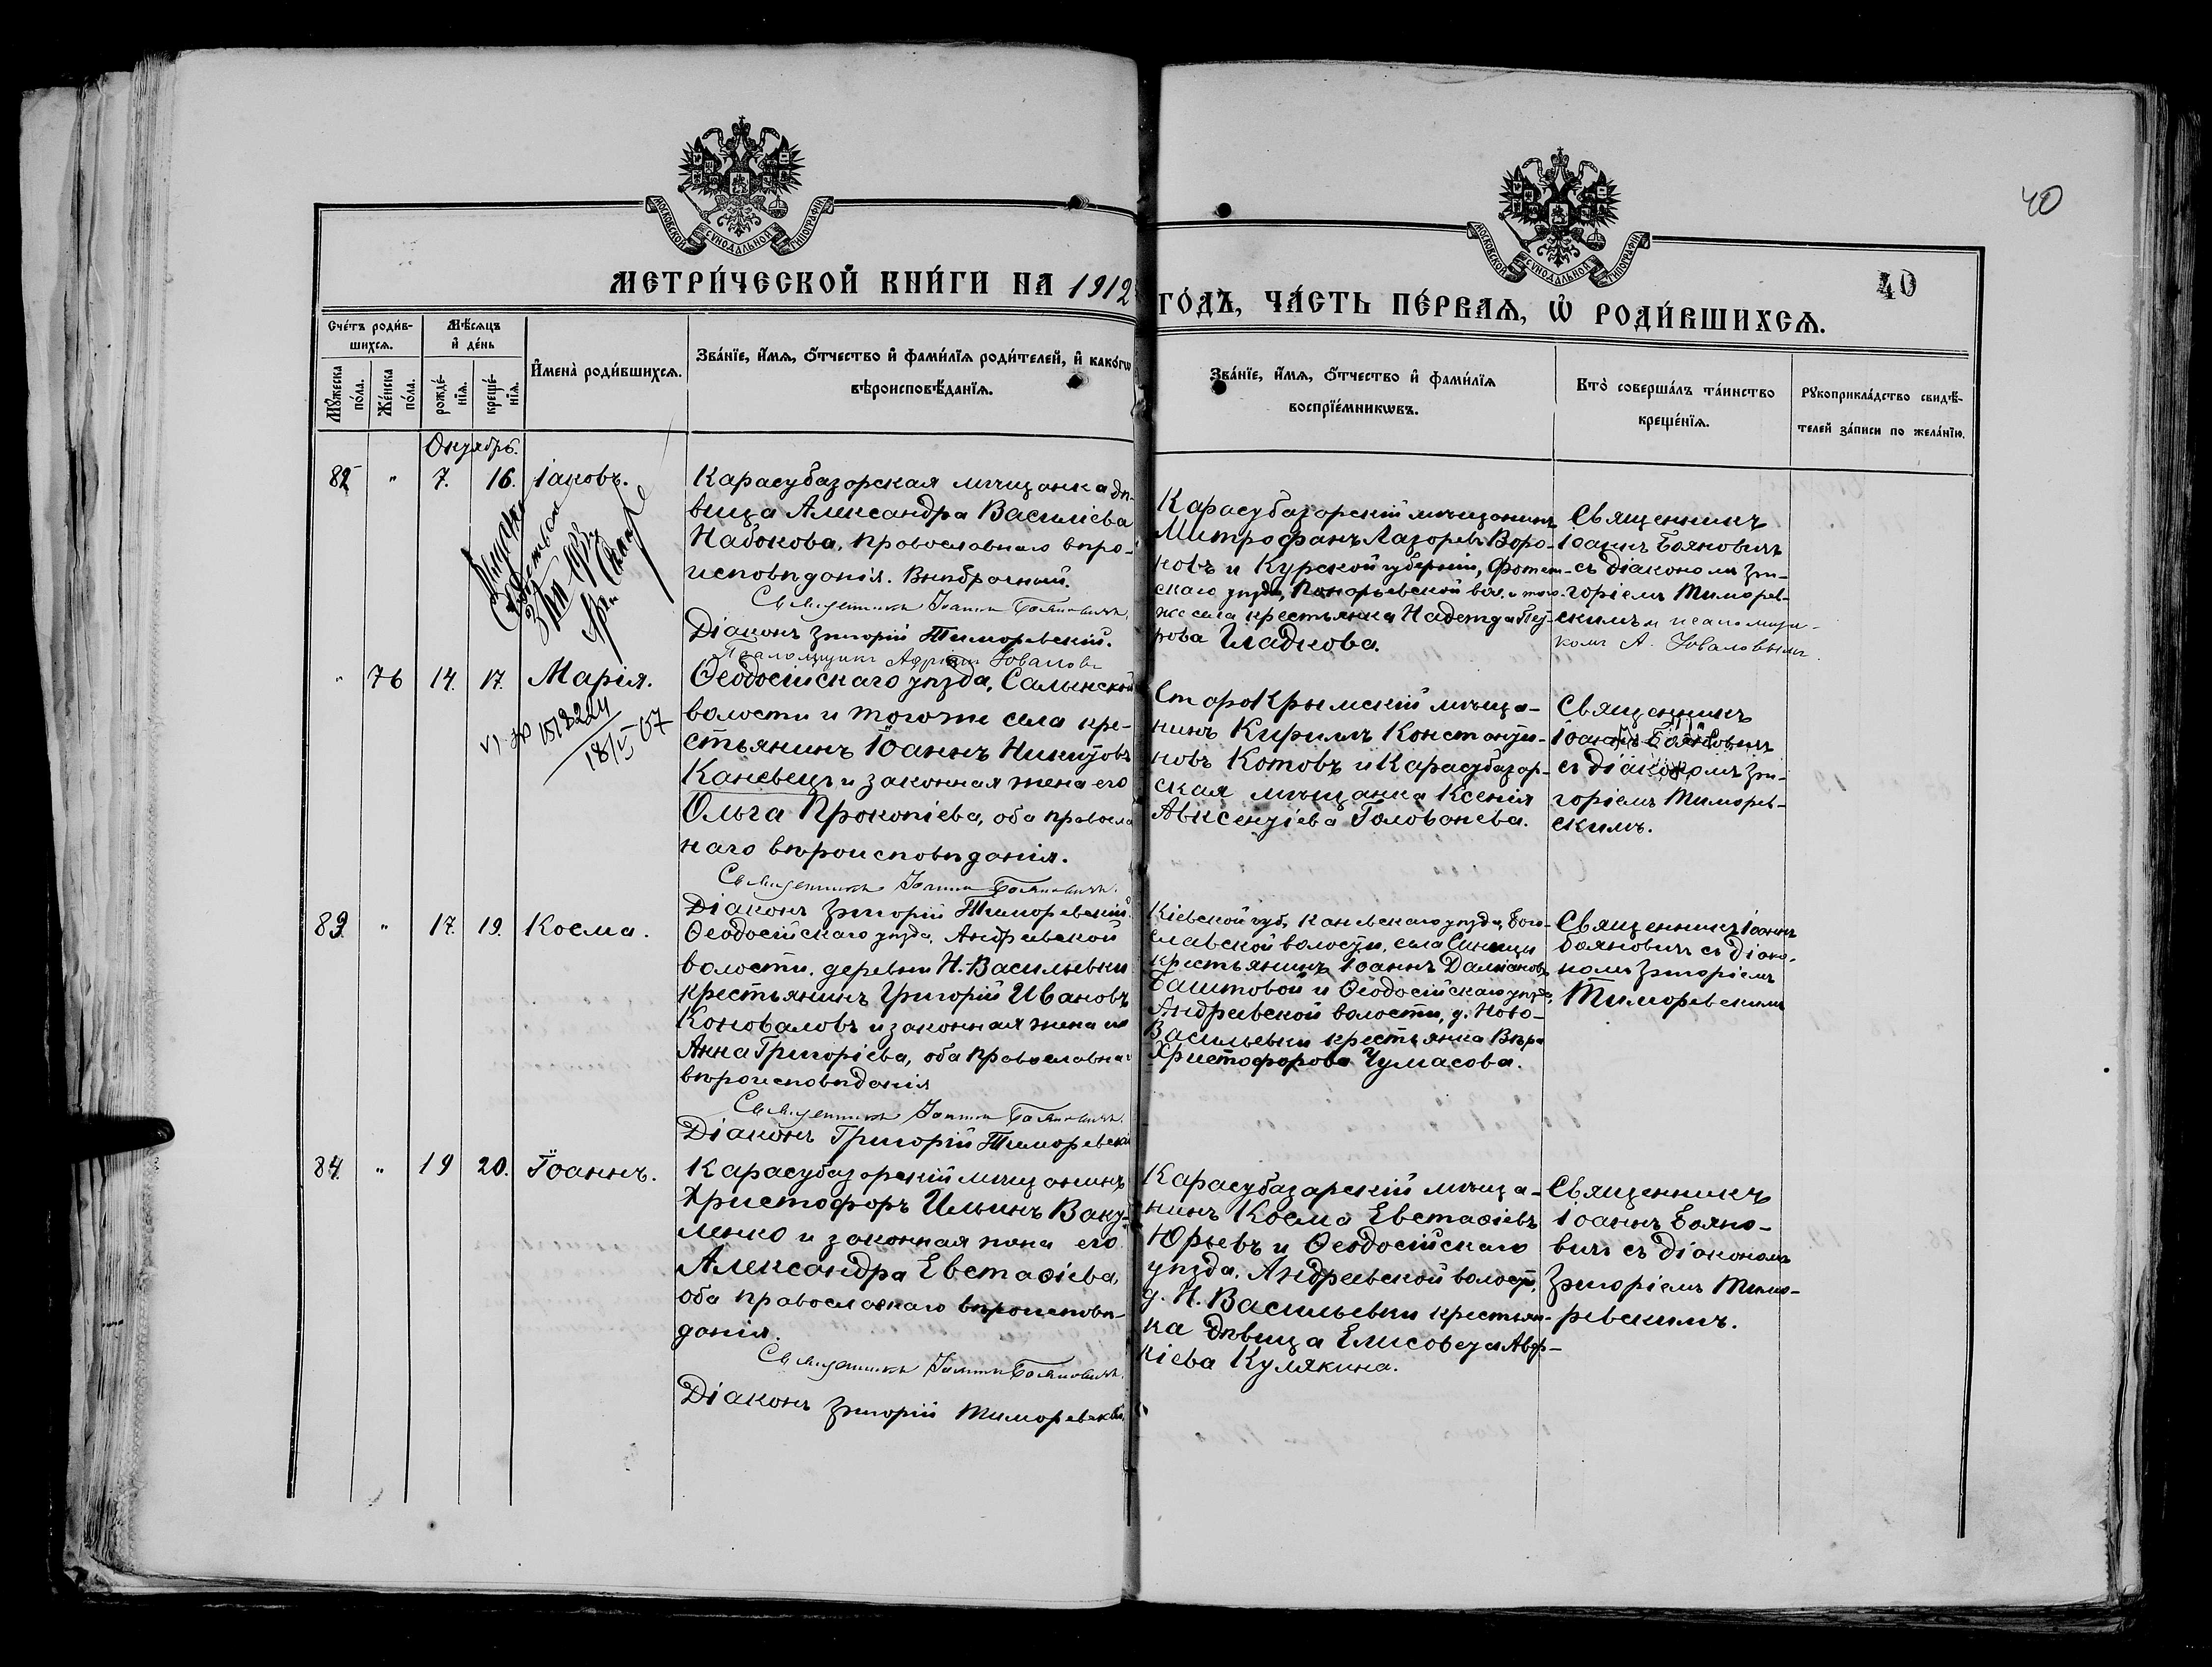 40
МОСКОВСКОЙ СѴНОДАЛЬНОЙ ТИПОГРАФІИ
МОСКОВСКОЙ СѴНОДАЛЬНОЙ ТИПОГРАФІИ
40
МЕТРИ́ЧЕСКОЙ КНИ́ГИ НА 1912
ГО́ДЪ, ЧА́СТЬ ПЕ́РВАѦ, Ѡ҆ РОДИ́ВШИХСѦ.
Сче́тъ роди́в-
шихсѧ.
Мꙋ́жеска по́ла.
Же́нска по́ла.
Мѣ́сѧцъ
и҆ де́нь
рожде́-
нїѧ.
креще́-
нїѧ.
И҆мена̀ роди́вшихсѧ.
Зва́нїе, и҆́мѧ, ѻ҆́тчество и҆ фами́лїѧ роди́телей, и҆ како́гѡ
вѣроисповѣ́данїѧ.
Зва́нїе, и҆́мѧ, ѻ҆́тчество и҆ фами́лїѧ
воспрїе́мникѡвъ.
Кто̀ соверша́лъ та́инство
креще́нїѧ.
Рꙋкоприкла́дство свидѣ́-
телей за́писи по жела́нїю.
Октябрь.
82 " 7. 16. Іаковъ.
Карасубазорская мѣщанка дѣ-
вица Александра Василіева
Набокова, православнаго вѣро-
исповѣданія. Внѣбрачный.
Священникъ Іоаннъ Бояновичъ
Діаконъ Григорій Тиморевскій.
Псаломщикъ Адріанъ
Карасубазарскій мѣщанинъ
Митрофанъ Лазоревъ Воро-
ковъ и Курской губерніи, Фатеж-
скаго уѣзда, вол. и того-
же села крестьянка Надежда Пет-
рова Гладкова.
Священникъ
Іоаннъ Бояновичъ
съ діакономъ Гри-
горіемъ Тиморев-
скимъ и псаломщи-
комъ А.
" 76 14. 17. Марія.
18/V-07
Ѳеодосійскаго уѣзда, Салынской
волости и тогоже села кре-
стьянинъ Іоаннъ Никитовъ
Каневецъ и законная жена его
Ольга Прокопіева, оба правосла
наго вѣроисповѣданія.
Священникъ Іоаннъ Бояновичъ.
Діаконъ Григорій Тиморевскій.
СтароКрымскій мѣща-
нинъ Кириллъ Константи-
новъ Котовъ и Карасубазар-
ская мѣщанка Ксенія
Авксентіева Голованева.
Священникъ
Іоаннъ Бояновичъ
съ діакономъ Гри-
горіемъ Тиморев-
скимъ.
83. " 17. 19. Косма.
Ѳеодосійскаго уѣзда, Андреевской
волости, деревни Н.-Васильевки
крестьянинъ Григорій Ивановъ
Коноваловъ и законная жена его
Анна Григоріева, оба православнаг
вѣроисповѣданія
Священникъ Іоаннъ Бояновичъ.
Діаконъ Григорій Тиморевскій
Кіевской губ, Каневскаго уѣзда, Бого-
славской волости, села Синицы
крестьянинъ Іоаннъ Даміановъ
Баштовой и Ѳеодосійскаго уѣзда,
Андреевской волости, д. Ново-
Васильевки крестьянка Вѣра
Христофорова Чумасова.
Священникъ Іоаннъ
Бояновичъ съ діако-
номъ Григоріемъ
Тиморевскимъ
84. " 19 20. Іоаннъ.
Карасубазарскій мѣщанинъ
Христофоръ Ильинъ Ваку-
ленко и законная жена его
Александра Евстафіева,
оба православнаго вѣроисповѣ-
данія.
Священникъ Іоаннъ Бояновичъ.
Діаконъ Григорій Тиморевскій.
Карасубазарскій мѣща-
нинъ Косма Евстафіевъ
Юрьевъ и Ѳеодосійскаго
уѣзда, Андреевской волости,
д. Н. Васильевки крестьян-
ка дѣвица Елисавета Авер-
кіева Кулякина.
Священникъ
Іоаннъ Бояно-
вичъ съ діакономъ
Григоріемъ Тимо-
ревскимъ.